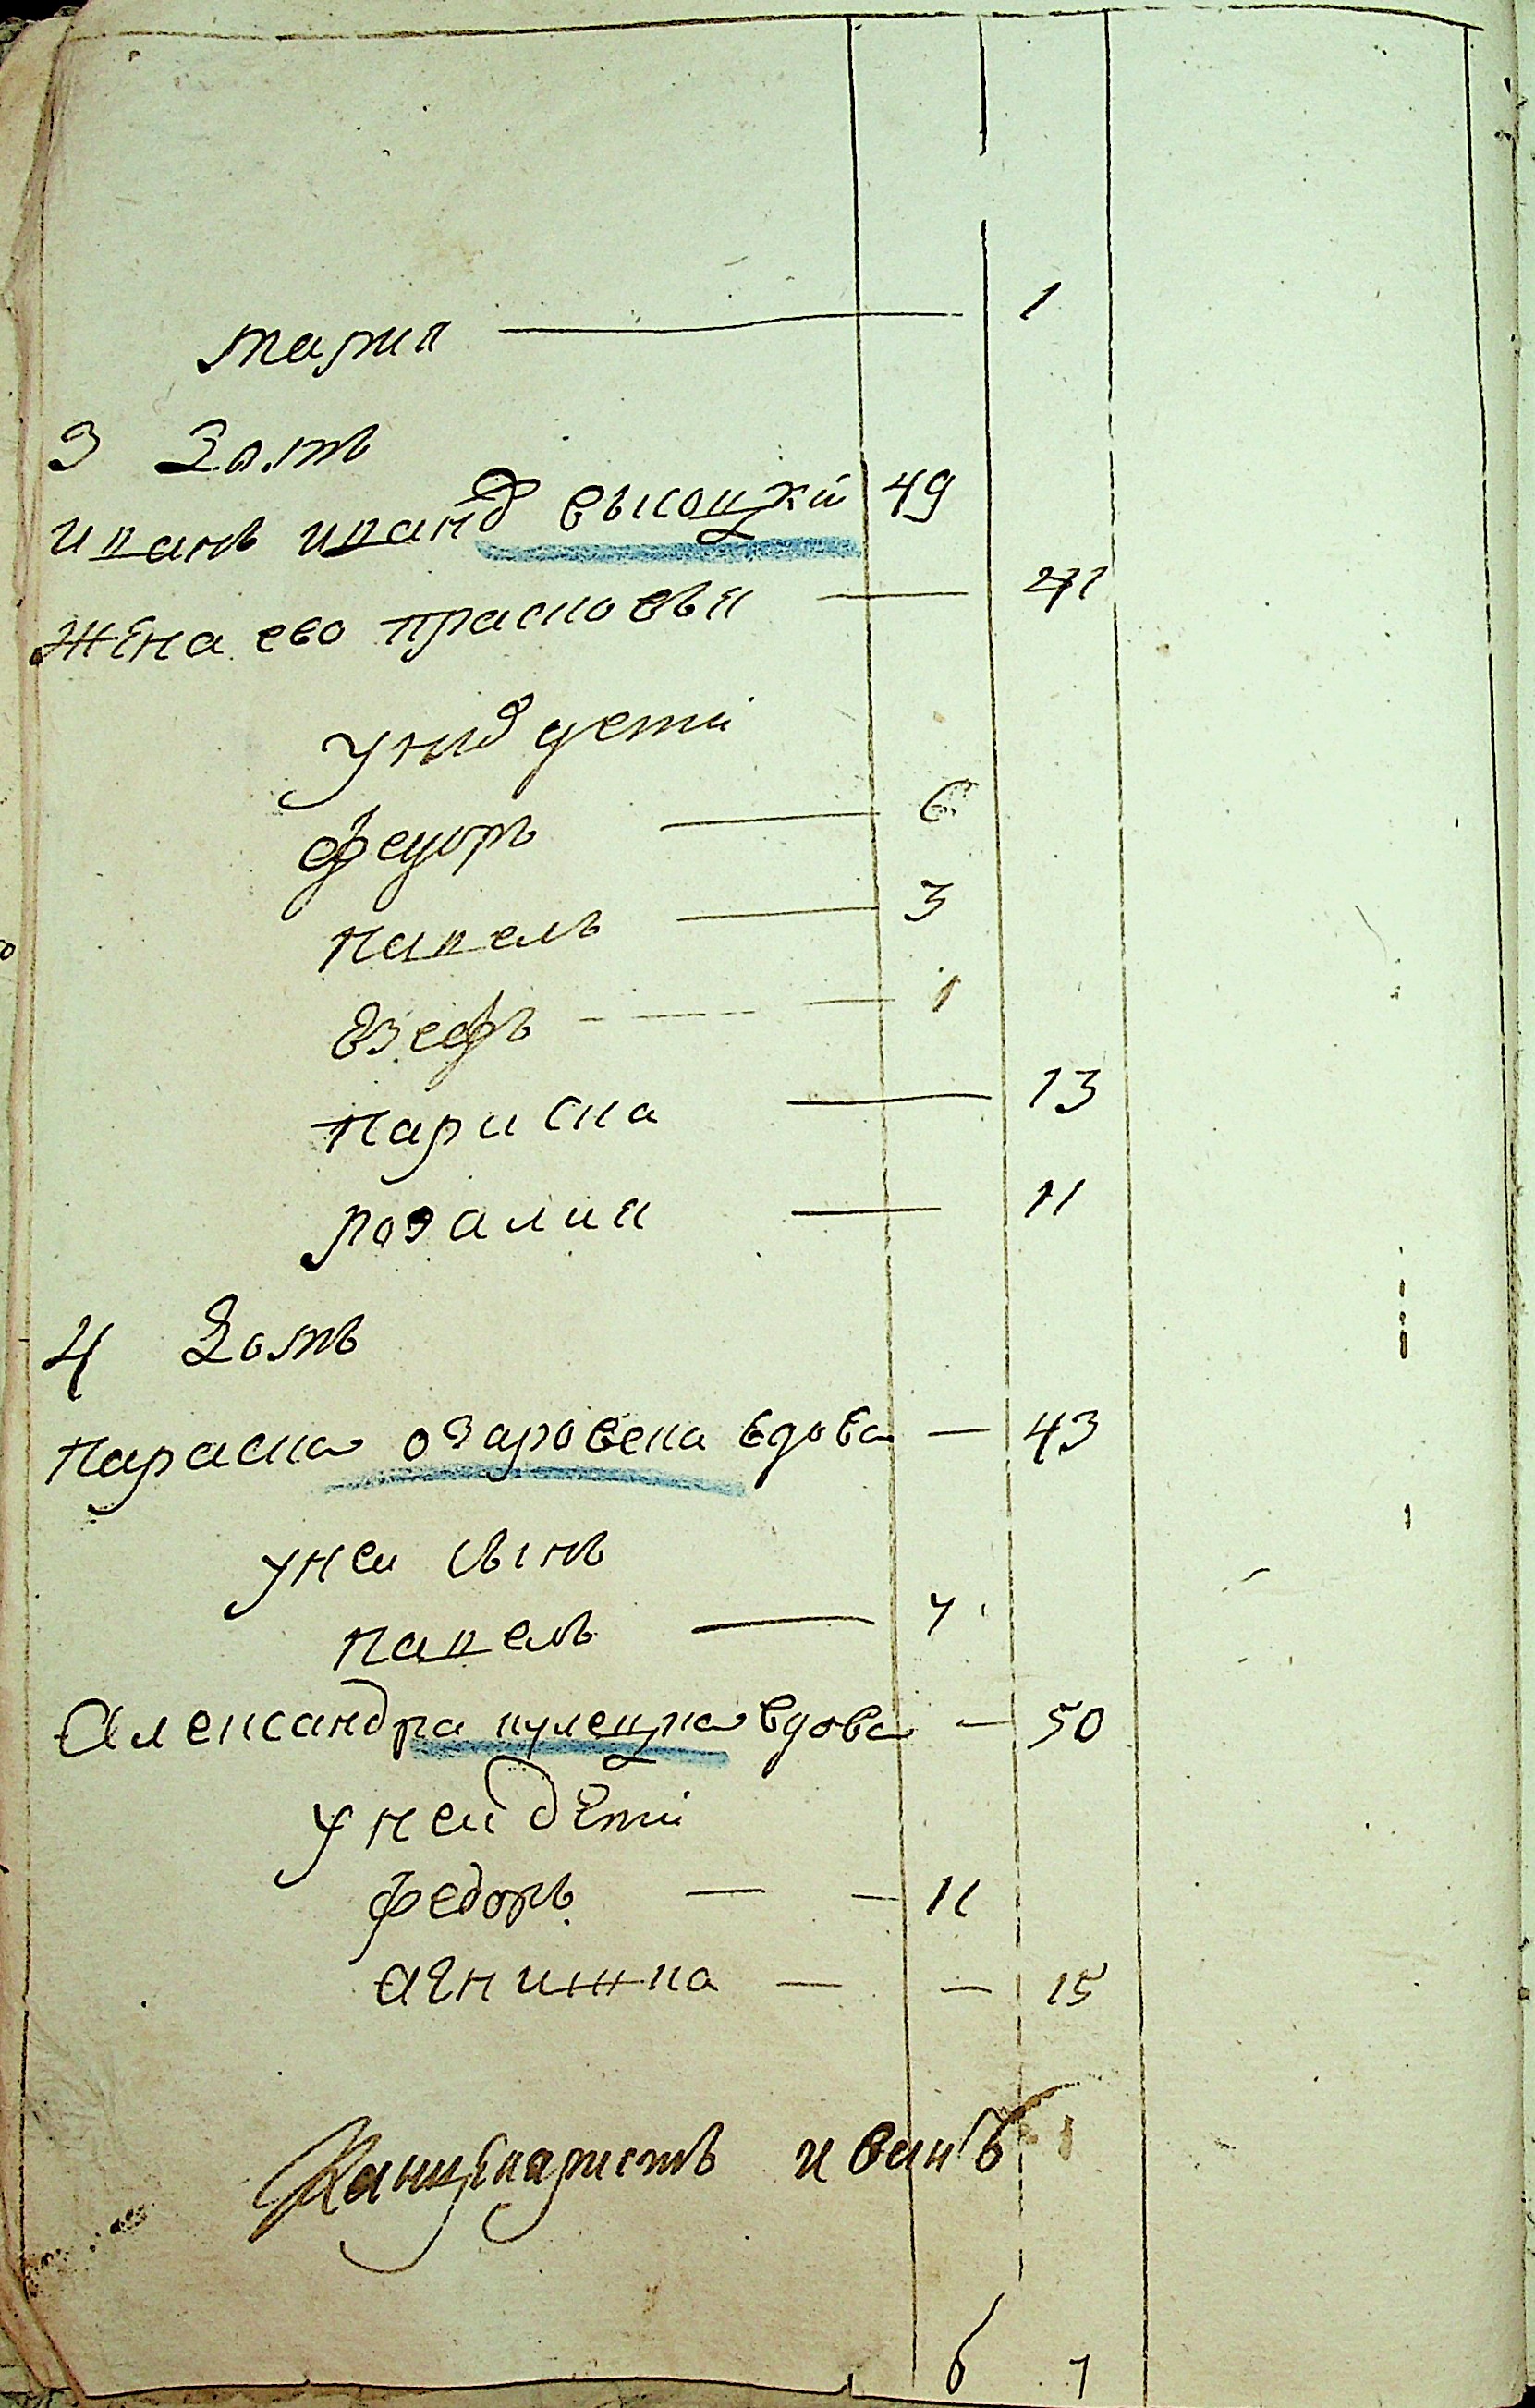 мария — 1
3 Затъ
иванъ иванд высоцкій 49
жена ево прасковья — 41
у нихъ деті
федоръ — 6
павелъ — 3
юзефъ — 1
париска — 13
розалия — 11
4 Затъ
параска озаровска вдова — 43
у неи сынъ
павелъ — 4
Александра кулецка вдова — 50
у неи деті
федоръ — 11
агнижка — 15
Канцеляристъ иванъ
6 7